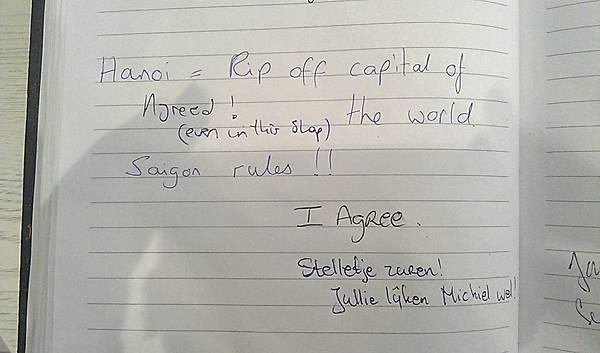 Hanoi = Rip off capital of
the world
Agreed !
(even in this shop)
Saigon rules !!
I Agree.
Stelletje zuren!
Jullie lijken Michiel wel!
Ja
Se